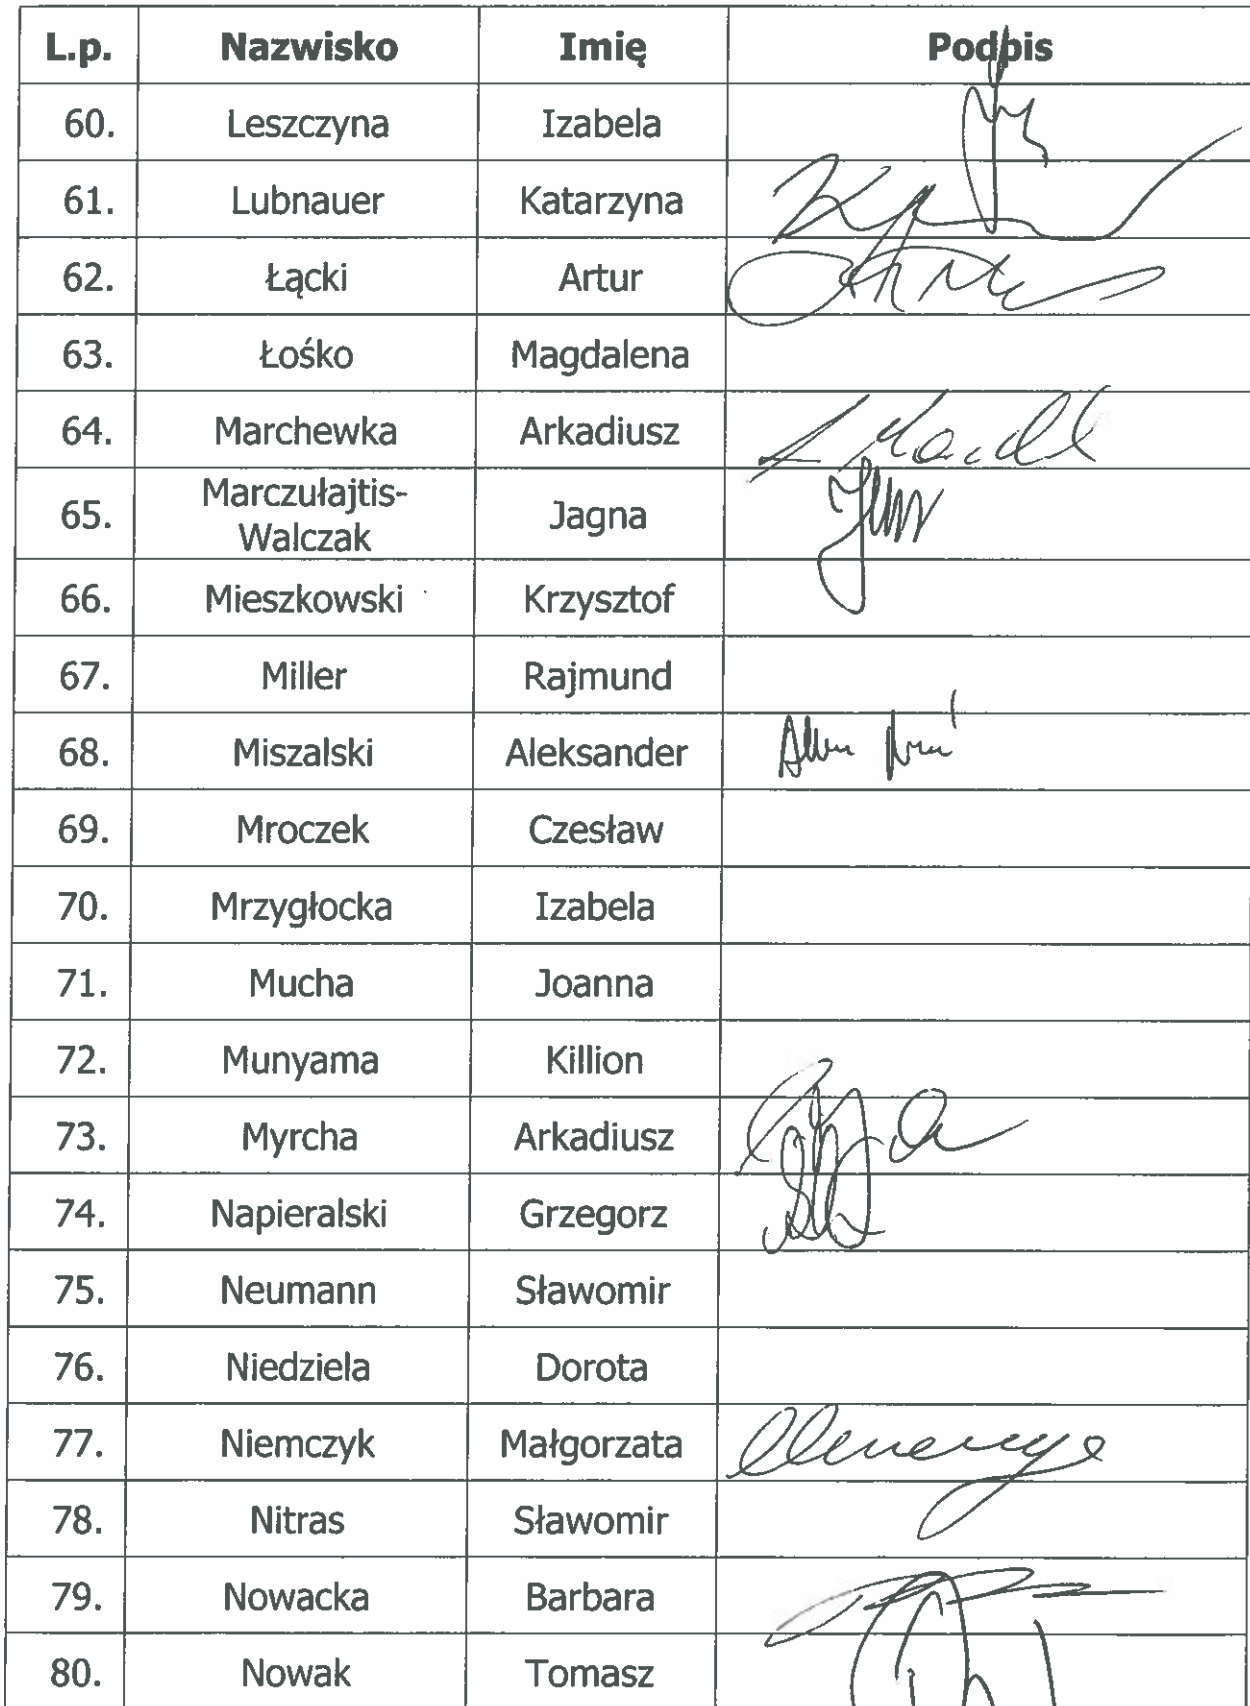 L.p. Nazwisko Imię Podpis
60. Leszczyna Izabela
61. Lubnauer Katarzyna
62. Łącki Artur
63. Łośko Magdalena
64. Marchewka Arkadiusz
65. Marczułajtis-
Walczak Jagna
66. Mieszkowski Krzysztof
67. Miller Rajmund
68. Miszalski Aleksander
69. Mroczek Czesław
70. Mrzygłocka Izabela
71. Mucha Joanna
72. Munyama Killion
73. Myrcha Arkadiusz
74. Napieralski Grzegorz
75. Neumann Sławomir
76. Niedziela Dorota
77. Niemczyk Małgorzata
78. Nitras Sławomir
79. Nowacka Barbara
80. Nowak Tomasz